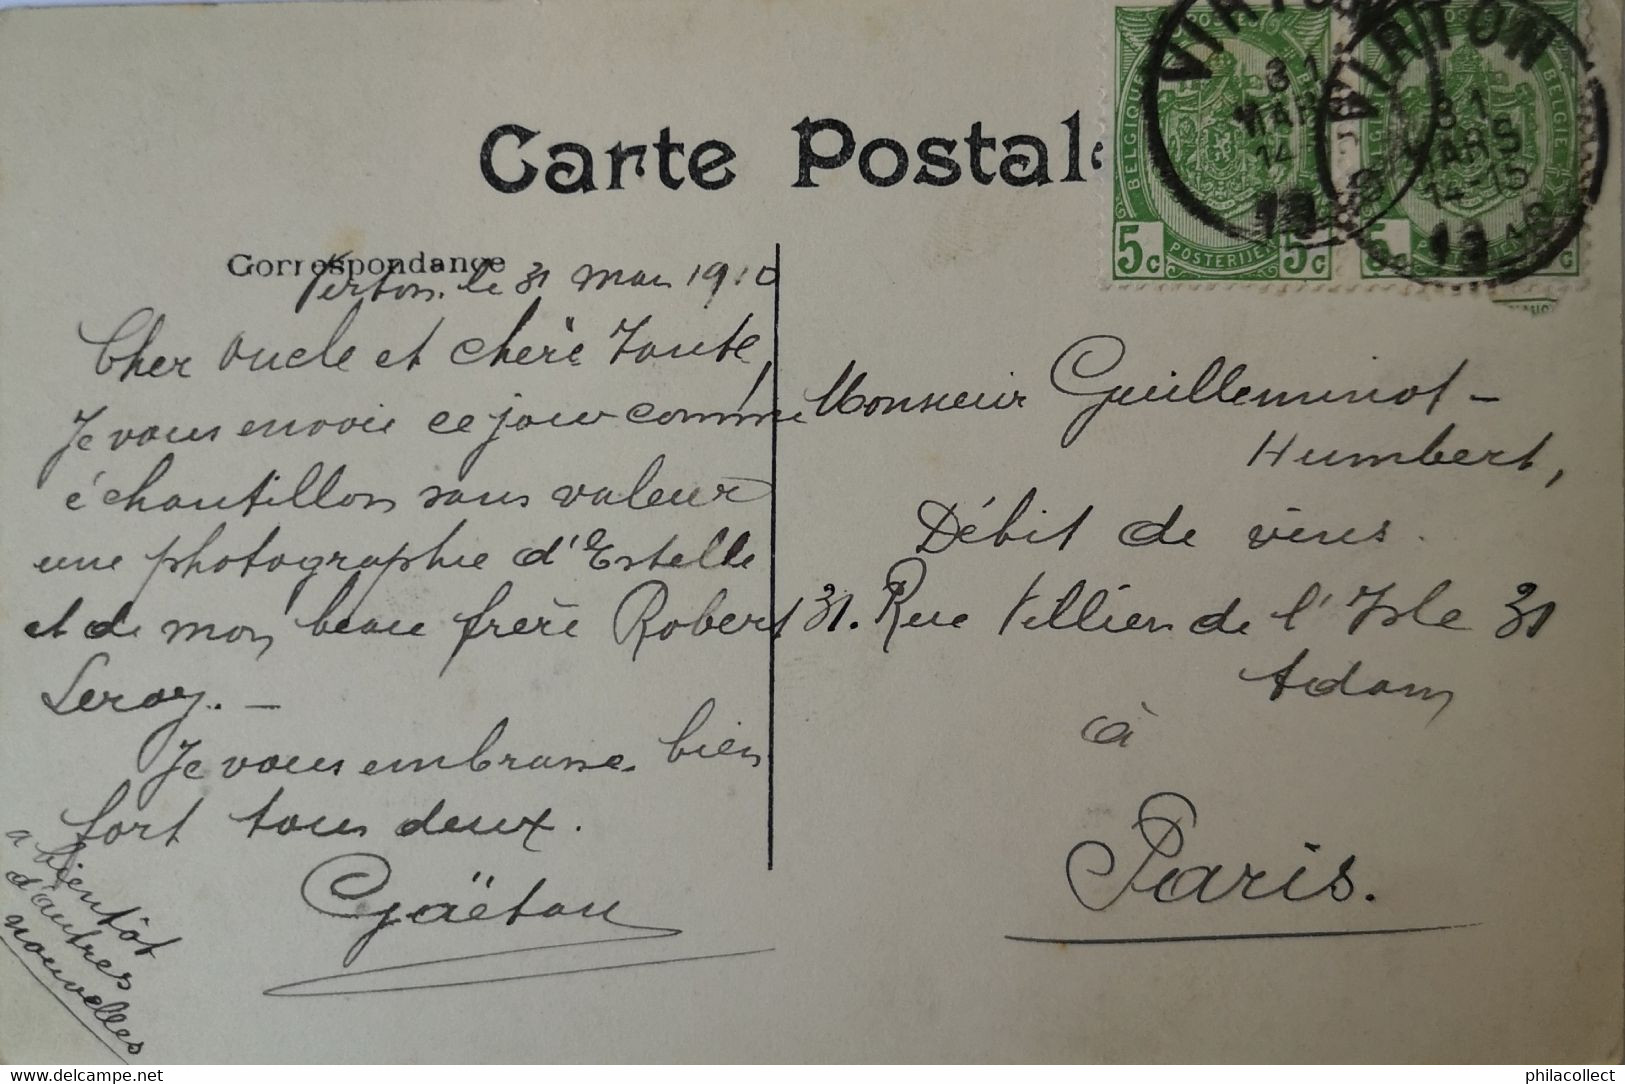 Carte Postale
Correspondance
Virton, le 31 mars 1910
Cher Oncle et chère Tante,
Je vous envoie ce jour comme
échantillon sans valeur
une photographie d'Estelle
et de mon beau frère Robert
Leroy. —
Je vous embrasse bien
fort tous deux.
Gaëtan
a bientôt
d'autres
nouvelles
Monsieur Guilleminot -
Humbert,
Débit de vins.
31. Rue Villiers de l'Isle 31
Adam
à
Paris.
VIRTON
31
MARS
14
VIRTON
31
MARS
14-15
BELGIQUE
POSTERIJEN
5c 5c
BELGIE
philacollect
philacollect.com